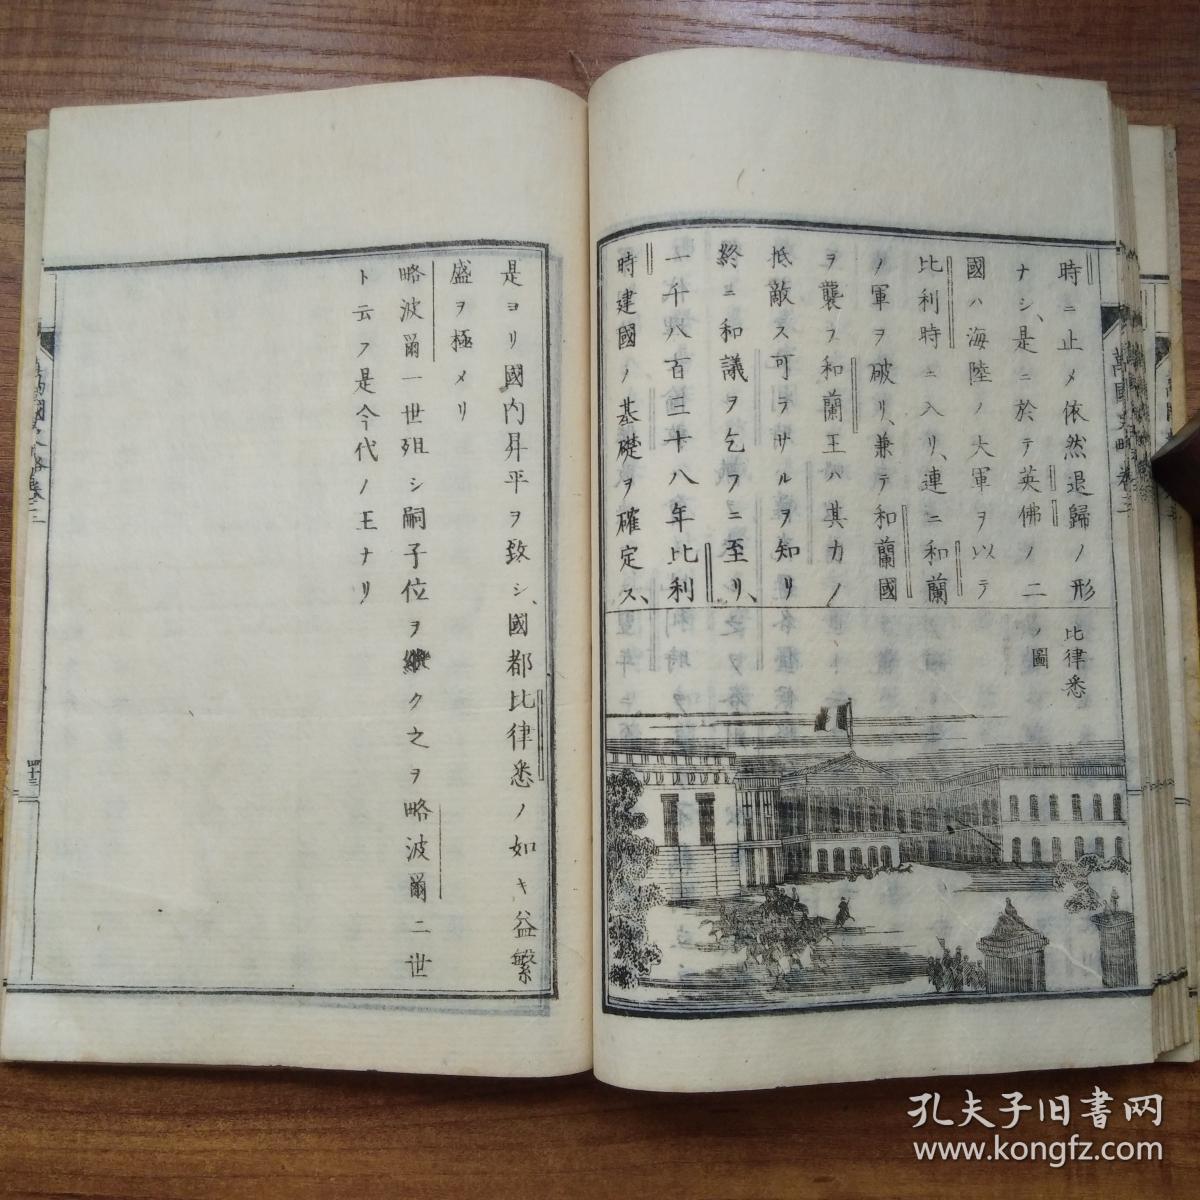 萬國史略 卷三
時ニ止メ依然退歸ノ形
ナシ、是ニ於テ英佛ノ二
國ハ海陸ノ大軍ヲ以テ
比利時ニ入リ、連ニ和蘭
ノ軍ヲ破リ、兼テ和蘭國
ヲ襲ヲ和蘭王ハ其力ノ
抵敵ス可ラサルヲ知リ
終ニ和議ヲ乞フニ至リ、
一千八百三十八年比利
時建國ノ基礎ヲ確定ス、
比律悉
ノ圖
是ヨリ國内昇平ヲ致シ、國都比律悉ノ如キ益繁
盛ヲ極メリ
略波爾一世殂シ嗣子位ヲ繼ク之ヲ略波爾二世
ト云フ是今代ノ王ナリ
四十三
孔夫子旧書网
www.kongfz.com